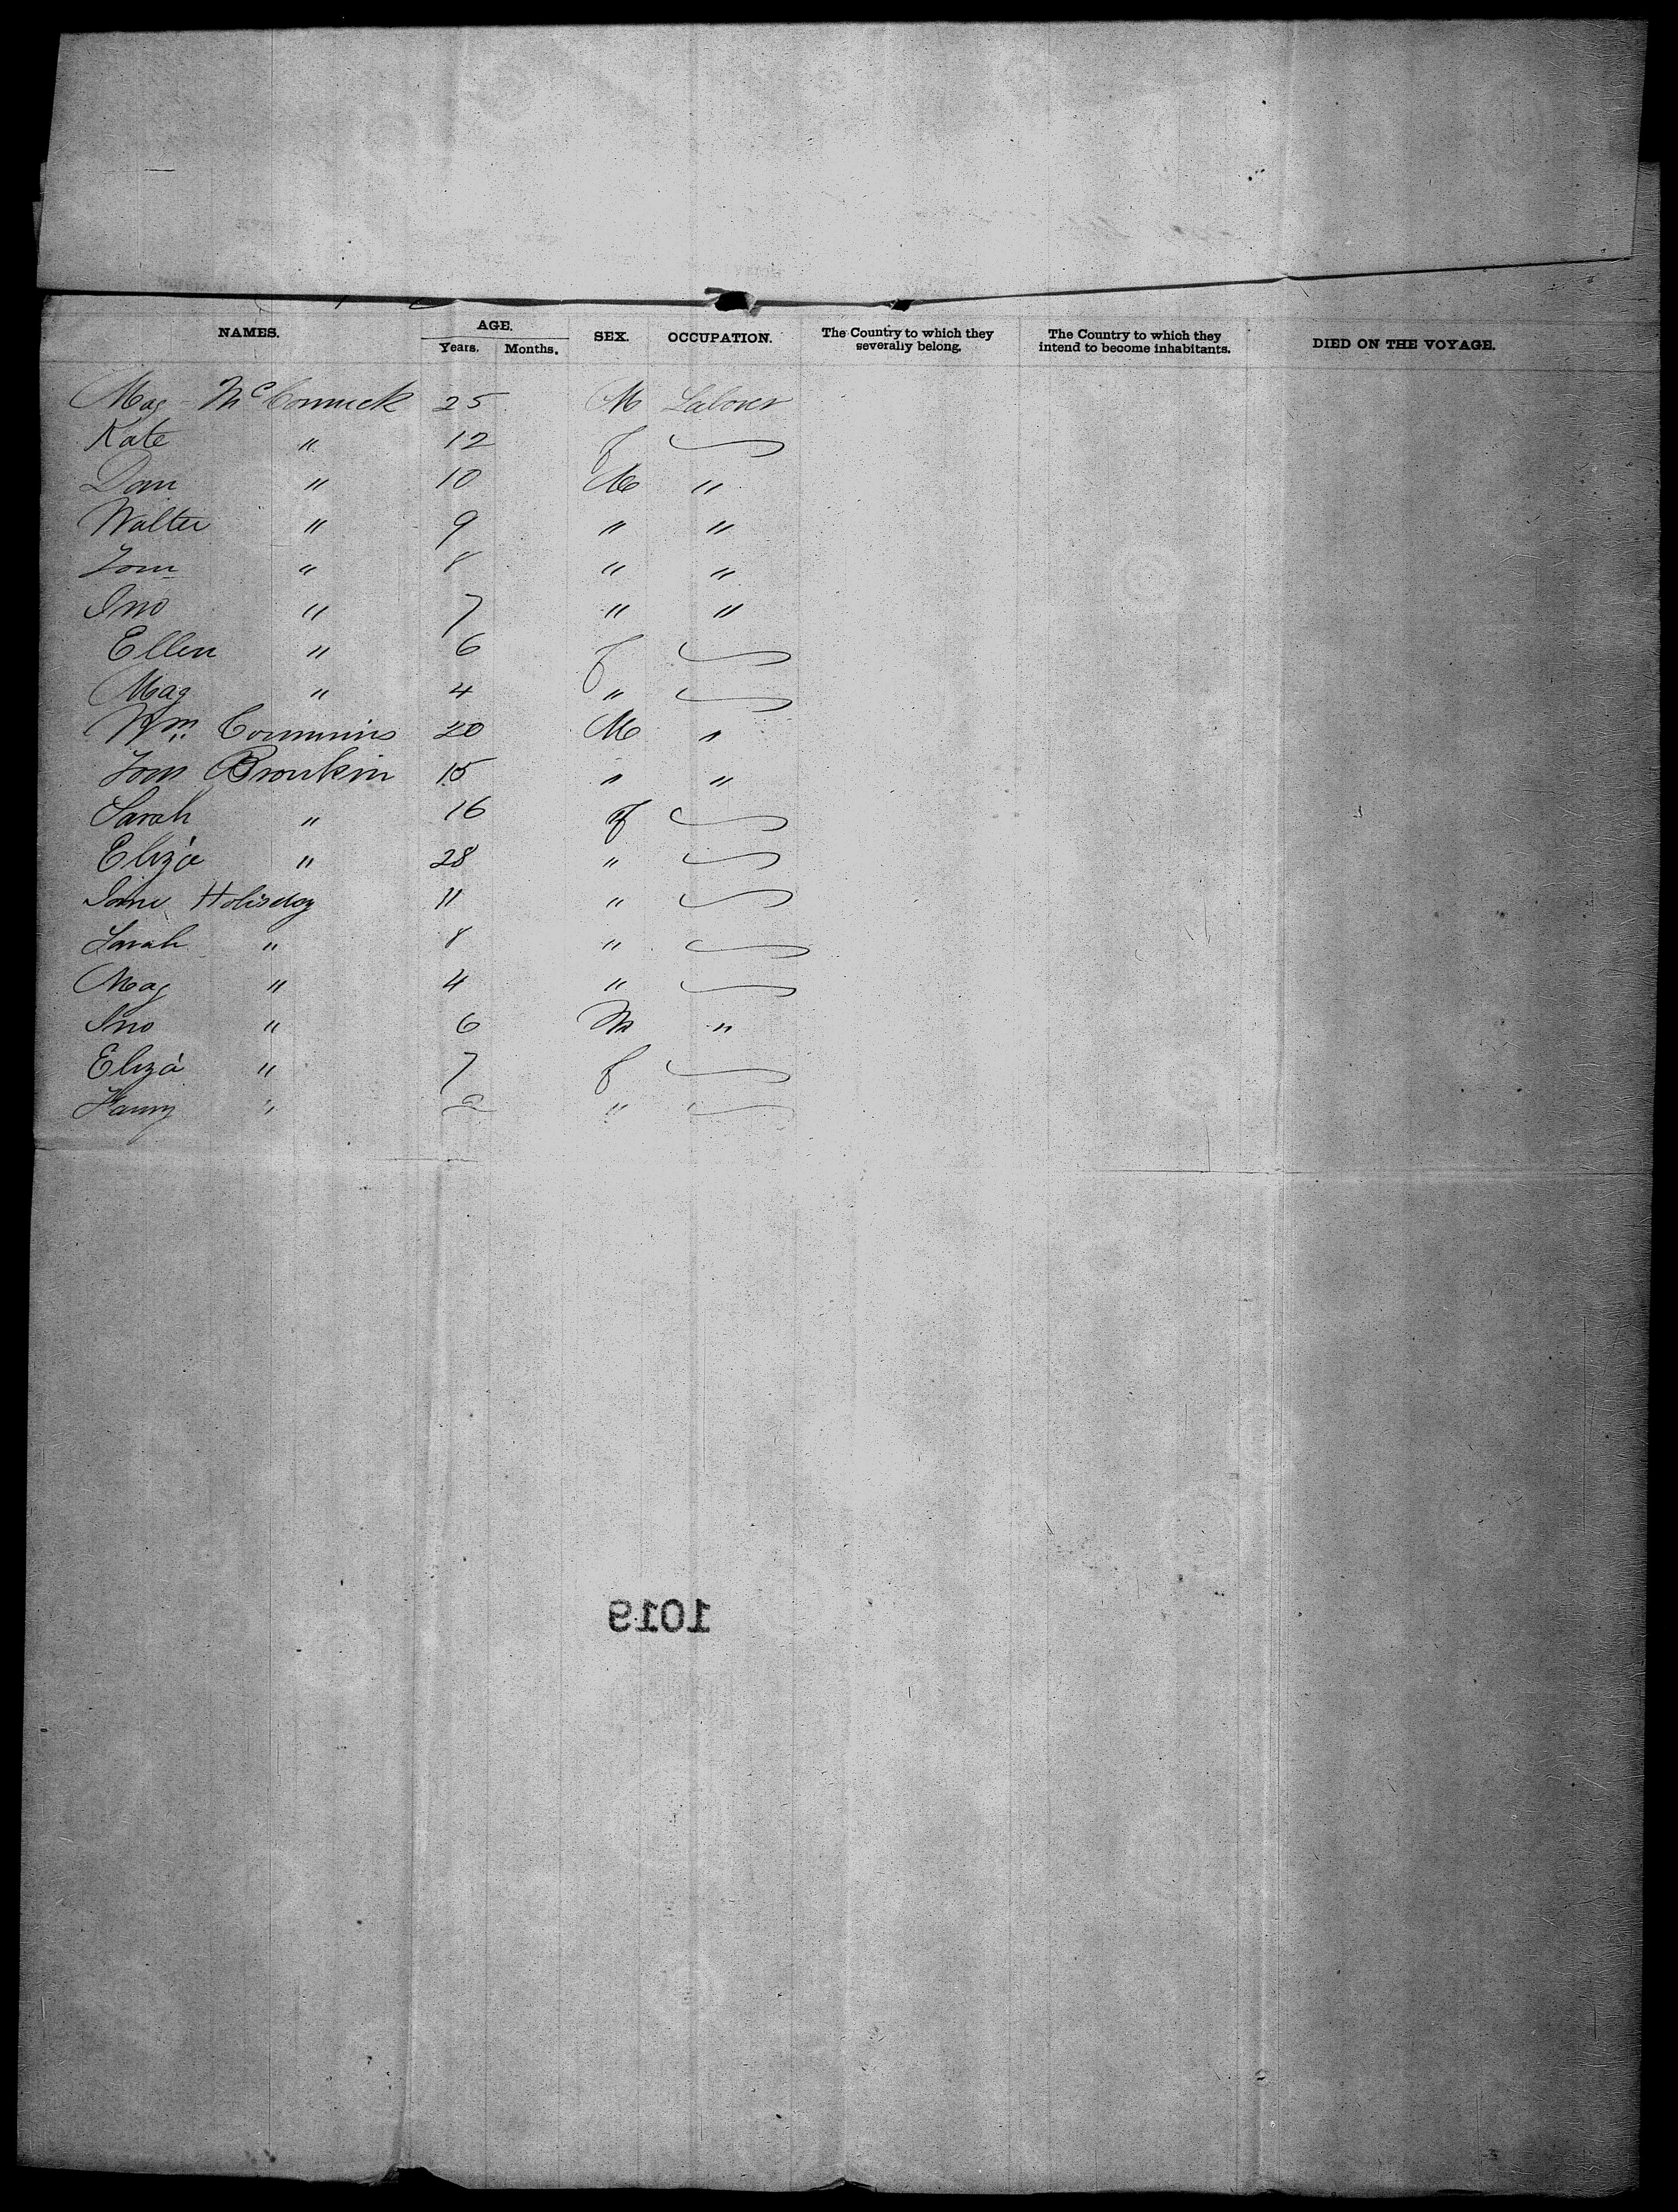 NAMES. AGE. SEX. OCCUPATION. The Country to which they severally belong. The Country to which they intend to become inhabitants. DIED ON THE VOYAGE.
Years. Months.
Mag McCormick 25 M Laborer
Kate " 12 f
Dan " 10 M "
Walter " 9 " "
Tom " 8 " "
Jno " 7 " "
Ellen " 6 f
Mag " 4 "
Wm Commins 20 M "
Tom Bronkin 15 " "
Sarah " 16 f
Eliza " 28 "
Jane Holisday 11 "
Sarah " 8 "
Mag " 4 "
Jno " 6 M "
Eliza " 7 f
Fanny " "
1019